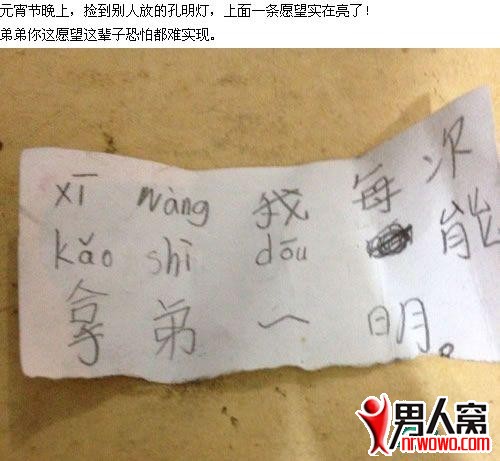 元宵节晚上，捡到别人放的孔明灯，上面一条愿望实在亮了！
弟弟你这愿望这辈子恐怕都难实现。
xī wàng 我 每 次
kǎo shì dōu 能
拿 弟 一 明。
男人窝
nrwowo.com